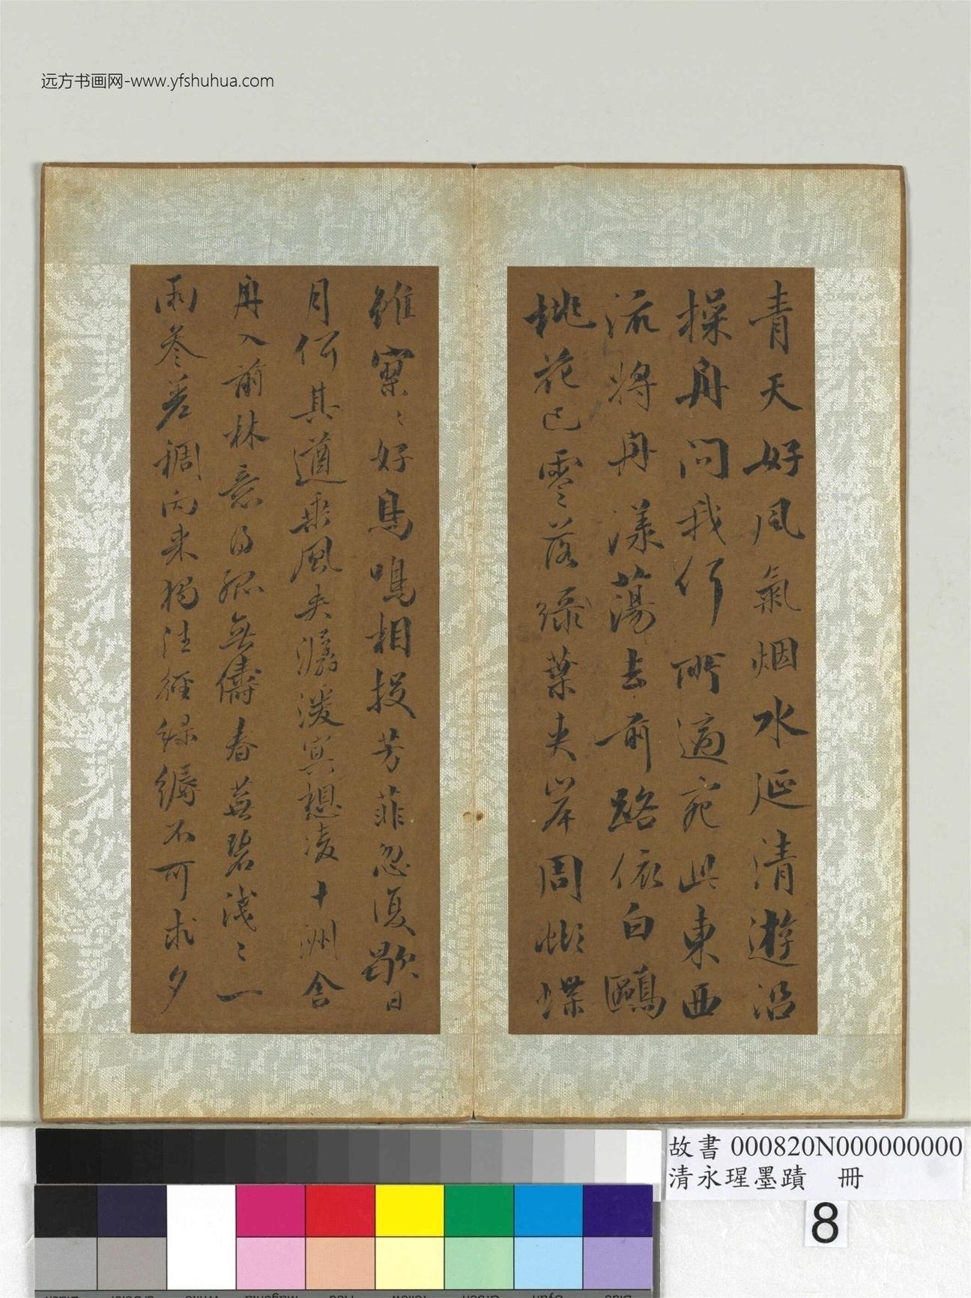 远方书画网-www.yfshuhua.com
青天好风氣烟水延清遊沿
操舟问我何所適宛此東西
流将舟漾蕩去前路依白鷗
桃花已零落緑葉夹岸周
雖寂〻好鳥鳴相投芳菲忽復歇日
月何其遒乘風夹潺湲冥想凌十洲舍
舟入前林意得孤無儔春蕪碧淺〻一
雨参差稠向来独往徑緑縟不可求夕
故書 000820N000000000
清永瑆墨蹟 冊
8